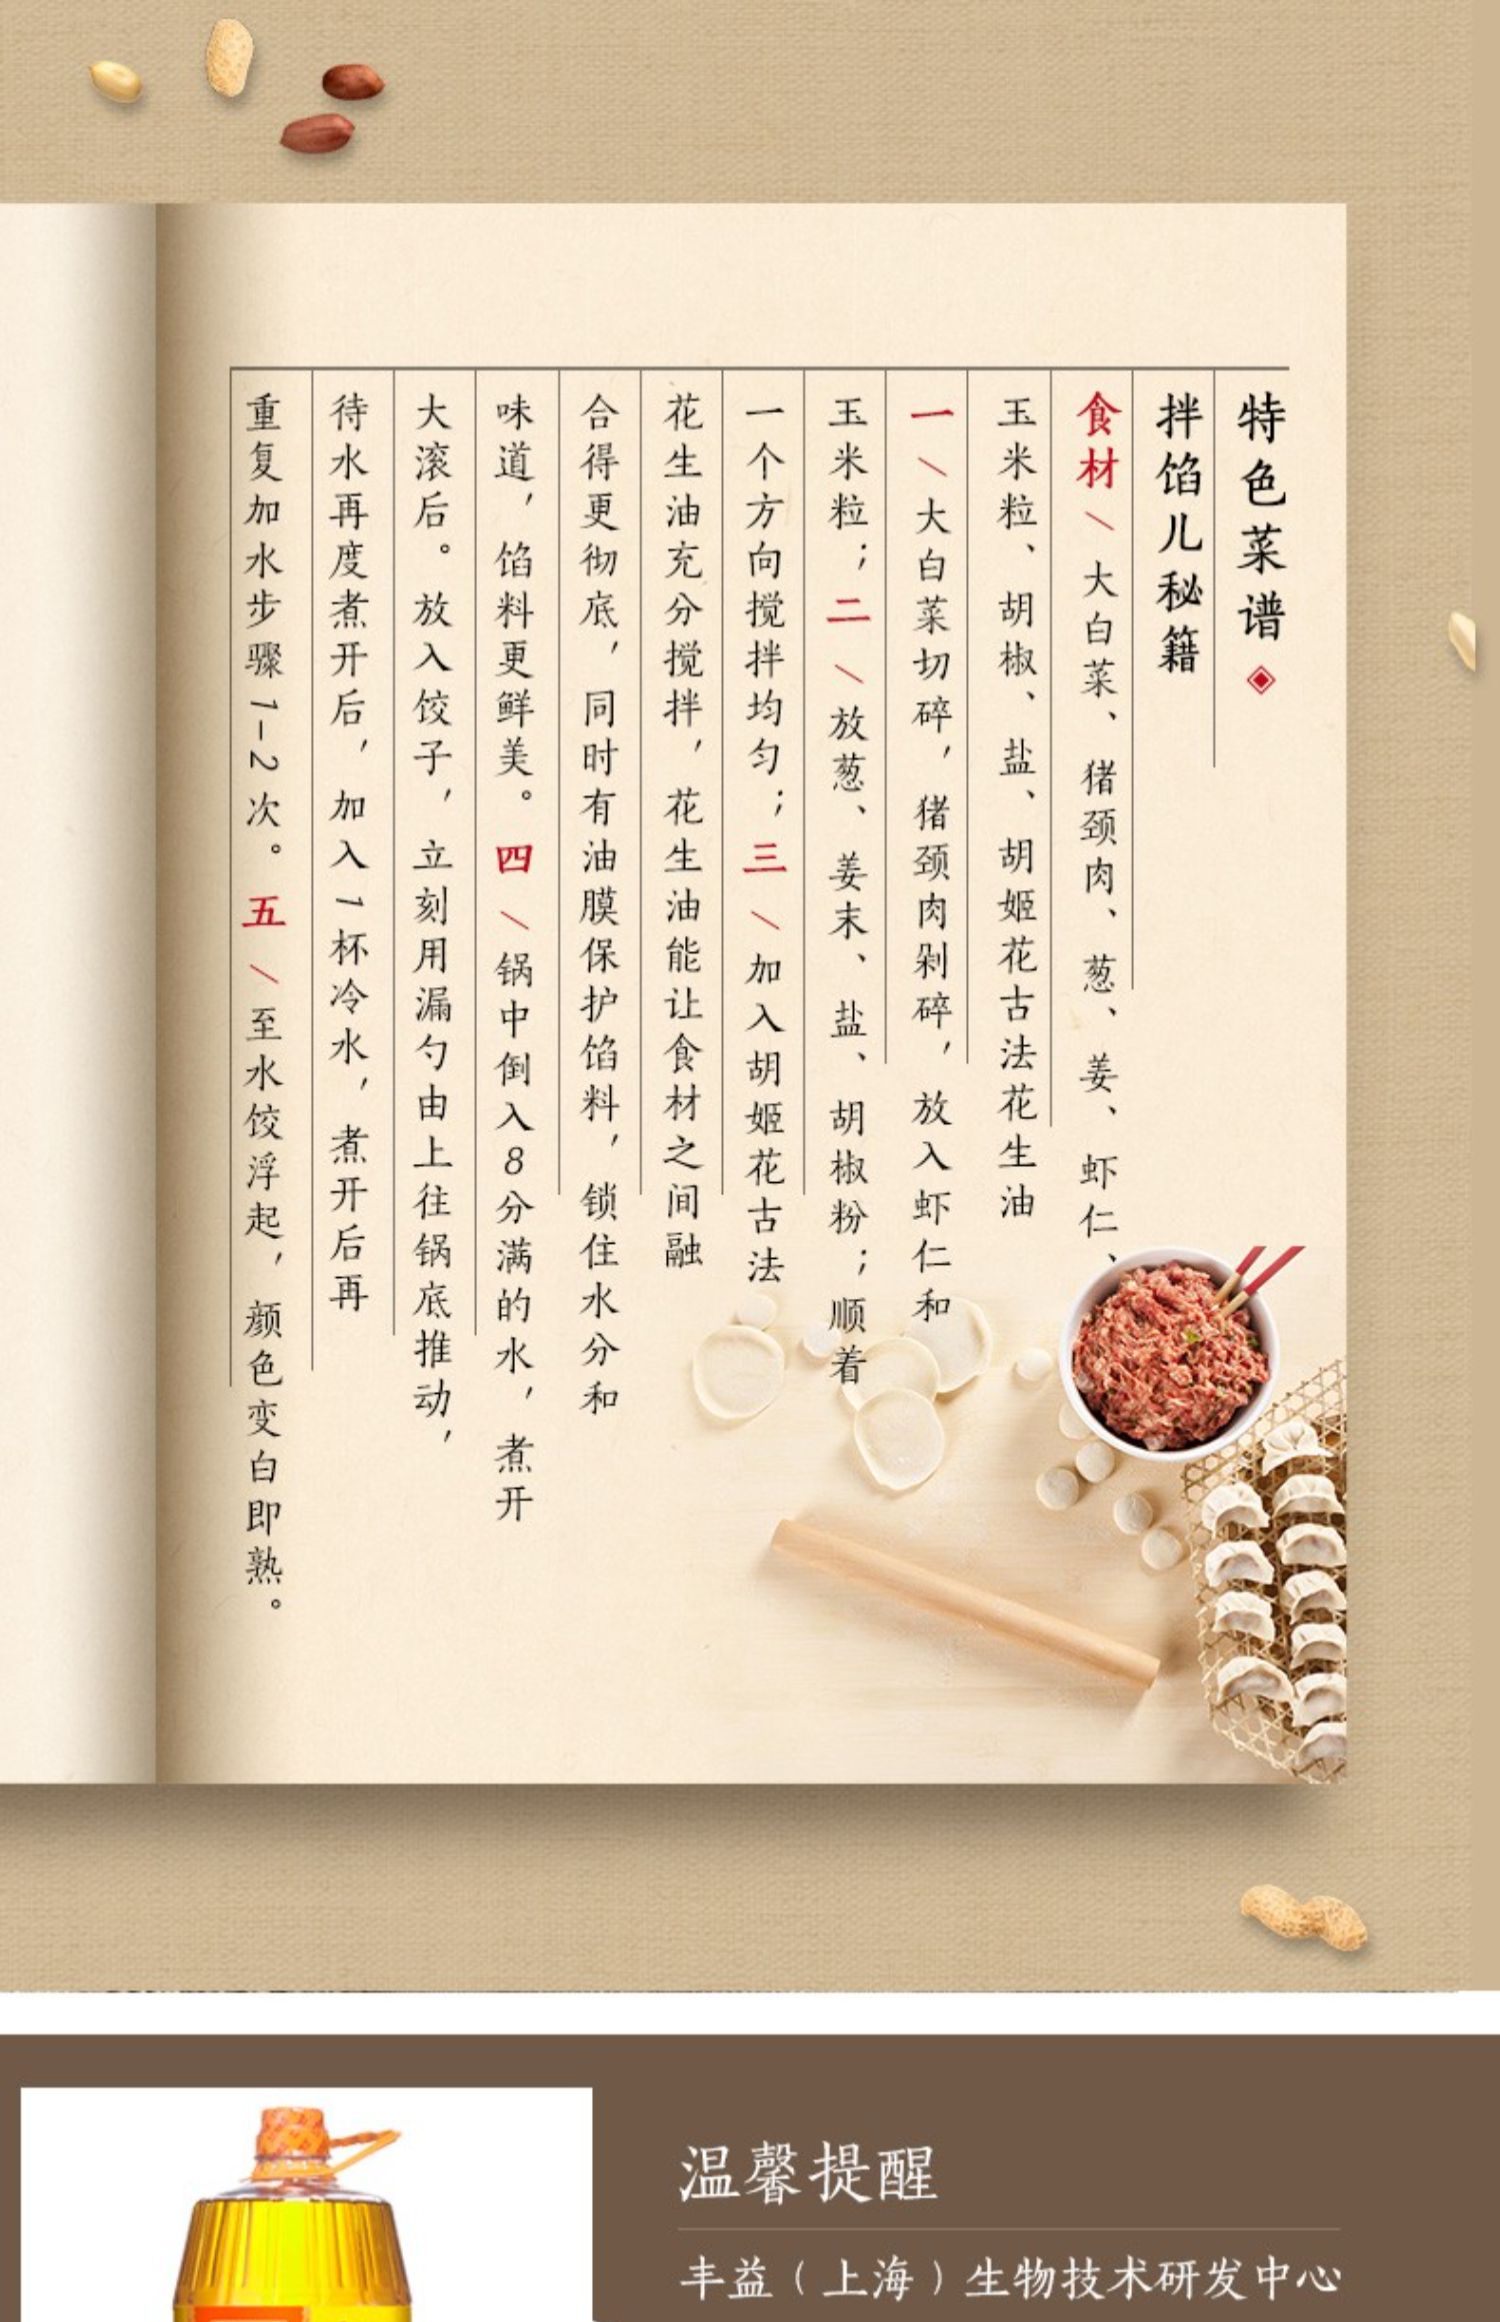 特色菜谱
拌馅儿秘籍
食材\大白菜、猪颈肉、葱、姜、虾仁、
玉米粒、胡椒、盐、胡姬花古法花生油
一\大白菜切碎，猪颈肉剁碎，放入虾仁和
玉米粒；二\放葱、姜末、盐、胡椒粉；顺着
一个方向搅拌均匀；三\加入胡姬花古法
花生油充分搅拌，花生油能让食材之间融
合得更彻底，同时有油膜保护馅料，锁住水分和
味道，馅料更鲜美。四\锅中倒入8分满的水，煮开
大滚后。放入饺子，立刻用漏勺由上往锅底推动，
待水再度煮开后，加入1杯冷水，煮开后再
重复加水步骤1-2次。五\至水饺浮起，颜色变白即熟。
温馨提醒
丰益（上海）生物技术研发中心